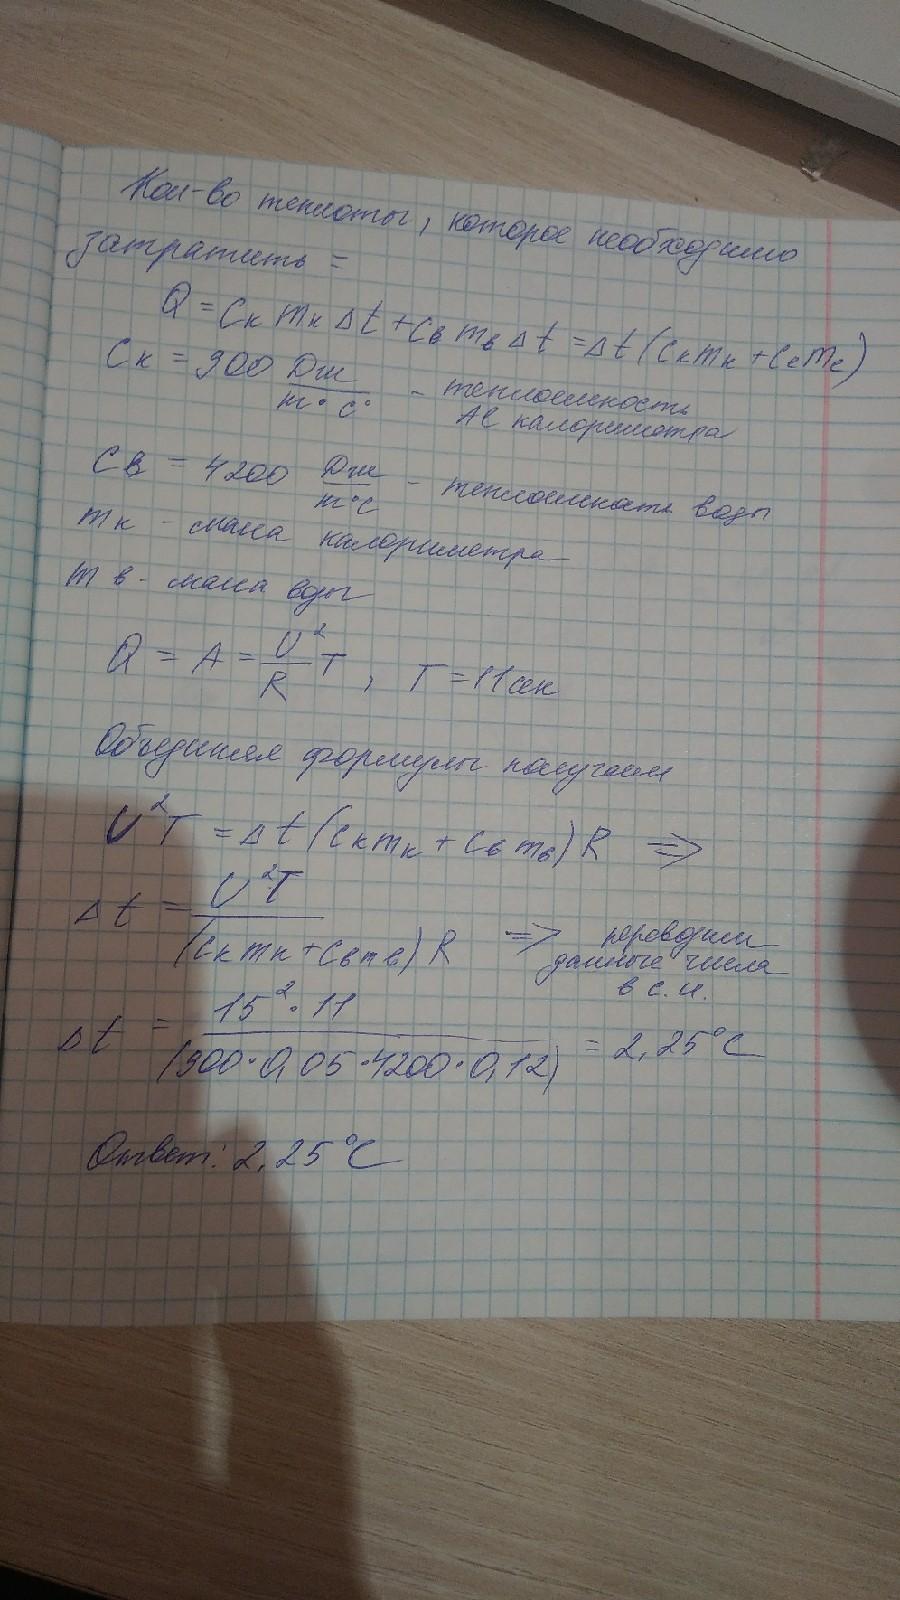 Кол-во теплоты, которое необходимо
затратить =
Q = Cк mк Δt + Cв mв Δt = Δt (Cк mк + Cв mв)
Cк = 900 Дж/m° с° - теплоемкость
Al калориметра
Cв = 4200 Дж/m°C - теплоемкость воды
mк - масса калориметра
m в - масса воды
Q = A = U²/R T, T = 11 сек
Объединяя формулы получаем
U²T = Δt (Cк mк + Cв mв) R =>
Δt = U²T / (Cк mк + Cв mв) R => переводим
данные числа
в с.и.
Δt = 15² · 11 / (900 · 0,05 · 4200 · 0,12) = 2,25°C
Ответ: 2,25°C